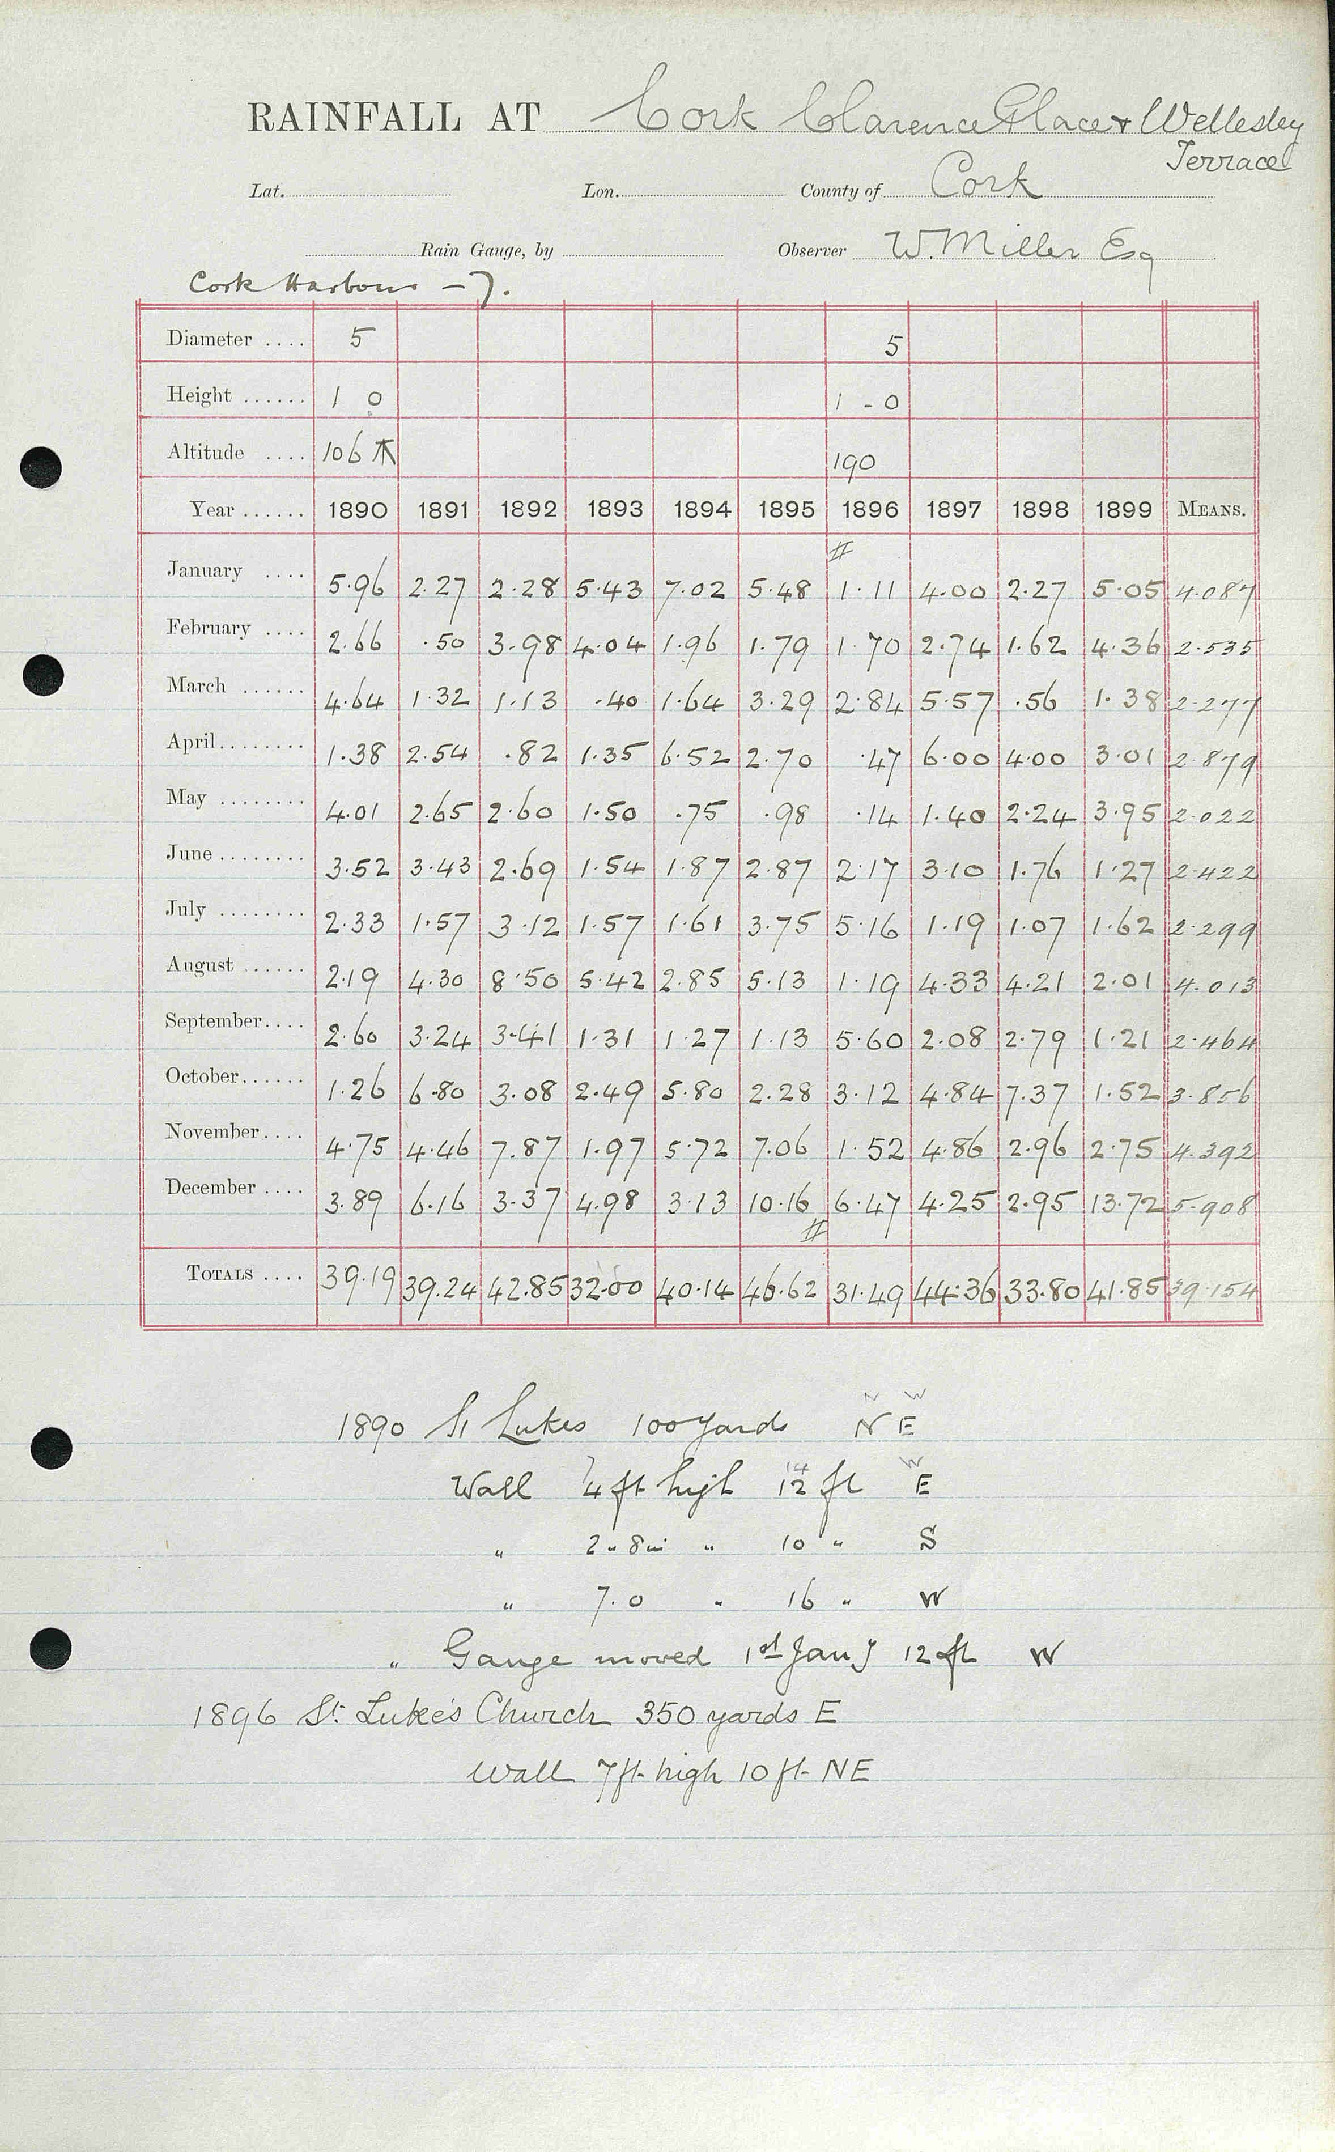 RAINFALL AT Cork Clarence Place & Wellesley
Terrace
Lat. Lon. County of Cork
Rain Gauge, by Observer W. Miller Esq
Cork Harbour - 7.
Diameter .... 5 5
Height ...... 1 0 1 - 0
Altitude .... 106 190
Year ...... 1890 1891 1892 1893 1894 1895 1896 1897 1898 1899 MEANS.
#
January .... 5.96 2.27 2.28 5.43 7.02 5.48 1.11 4.00 2.27 5.05 4.087
February .... 2.66 .50 3.98 4.04 1.96 1.79 1.70 2.74 1.62 4.36 2.535
March ...... 4.64 1.32 1.13 .40 1.64 3.29 2.84 5.57 .56 1.38 2.277
April........ 1.38 2.54 .82 1.35 6.52 2.70 .47 6.00 4.00 3.01 2.879
May ........ 4.01 2.65 2.60 1.50 .75 .98 .14 1.40 2.24 3.95 2.022
June ........ 3.52 3.43 2.69 1.54 1.87 2.87 2.17 3.10 1.76 1.27 2.422
July ........ 2.33 1.57 3.12 1.57 1.61 3.75 5.16 1.19 1.07 1.62 2.299
August ...... 2.19 4.30 8.50 5.42 2.85 5.13 1.19 4.33 4.21 2.01 4.013
September.... 2.60 3.24 3.41 1.31 1.27 1.13 5.60 2.08 2.79 1.21 2.464
October...... 1.26 6.80 3.08 2.49 5.80 2.28 3.12 4.84 7.37 1.52 3.856
November.... 4.75 4.46 7.87 1.97 5.72 7.06 1.52 4.86 2.96 2.75 4.392
December .... 3.89 6.16 3.37 4.98 3.13 10.16 6.47 4.25 2.95 13.72 5.908
#
TOTALS .... 39.19 39.24 42.85 32.00 40.14 46.62 31.49 44.36 33.80 41.85 39.154
N W
1890 St Lukes 100 yards N E
14 W
Wall 4 ft high 12 ft E
" 2 " 8 in " 10 " S
" 7.0 " 16 " W
" Gauge moved 1st Jany 12 ft W
1896 St. Luke's Church 350 yards E
Wall 7ft high 10 ft NE